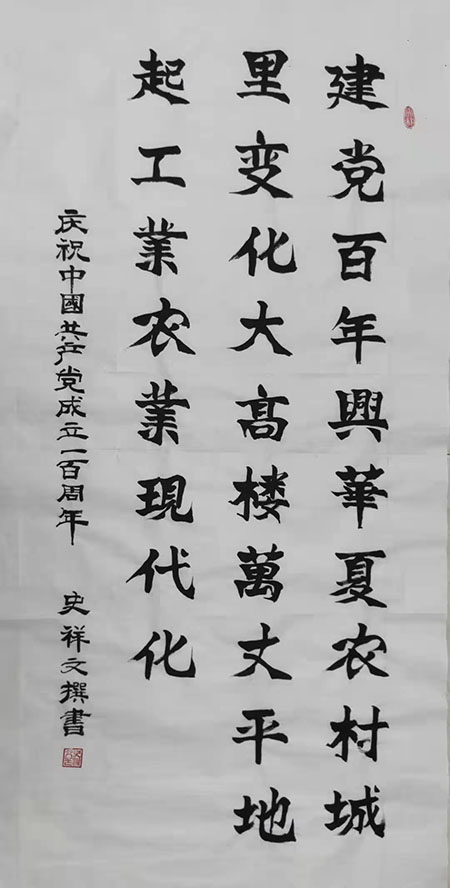 建党百年興華夏农村城
里变化大高楼萬丈平地
起工業农業現代化
庆祝中國共产党成立一百周年
史祥文撰書